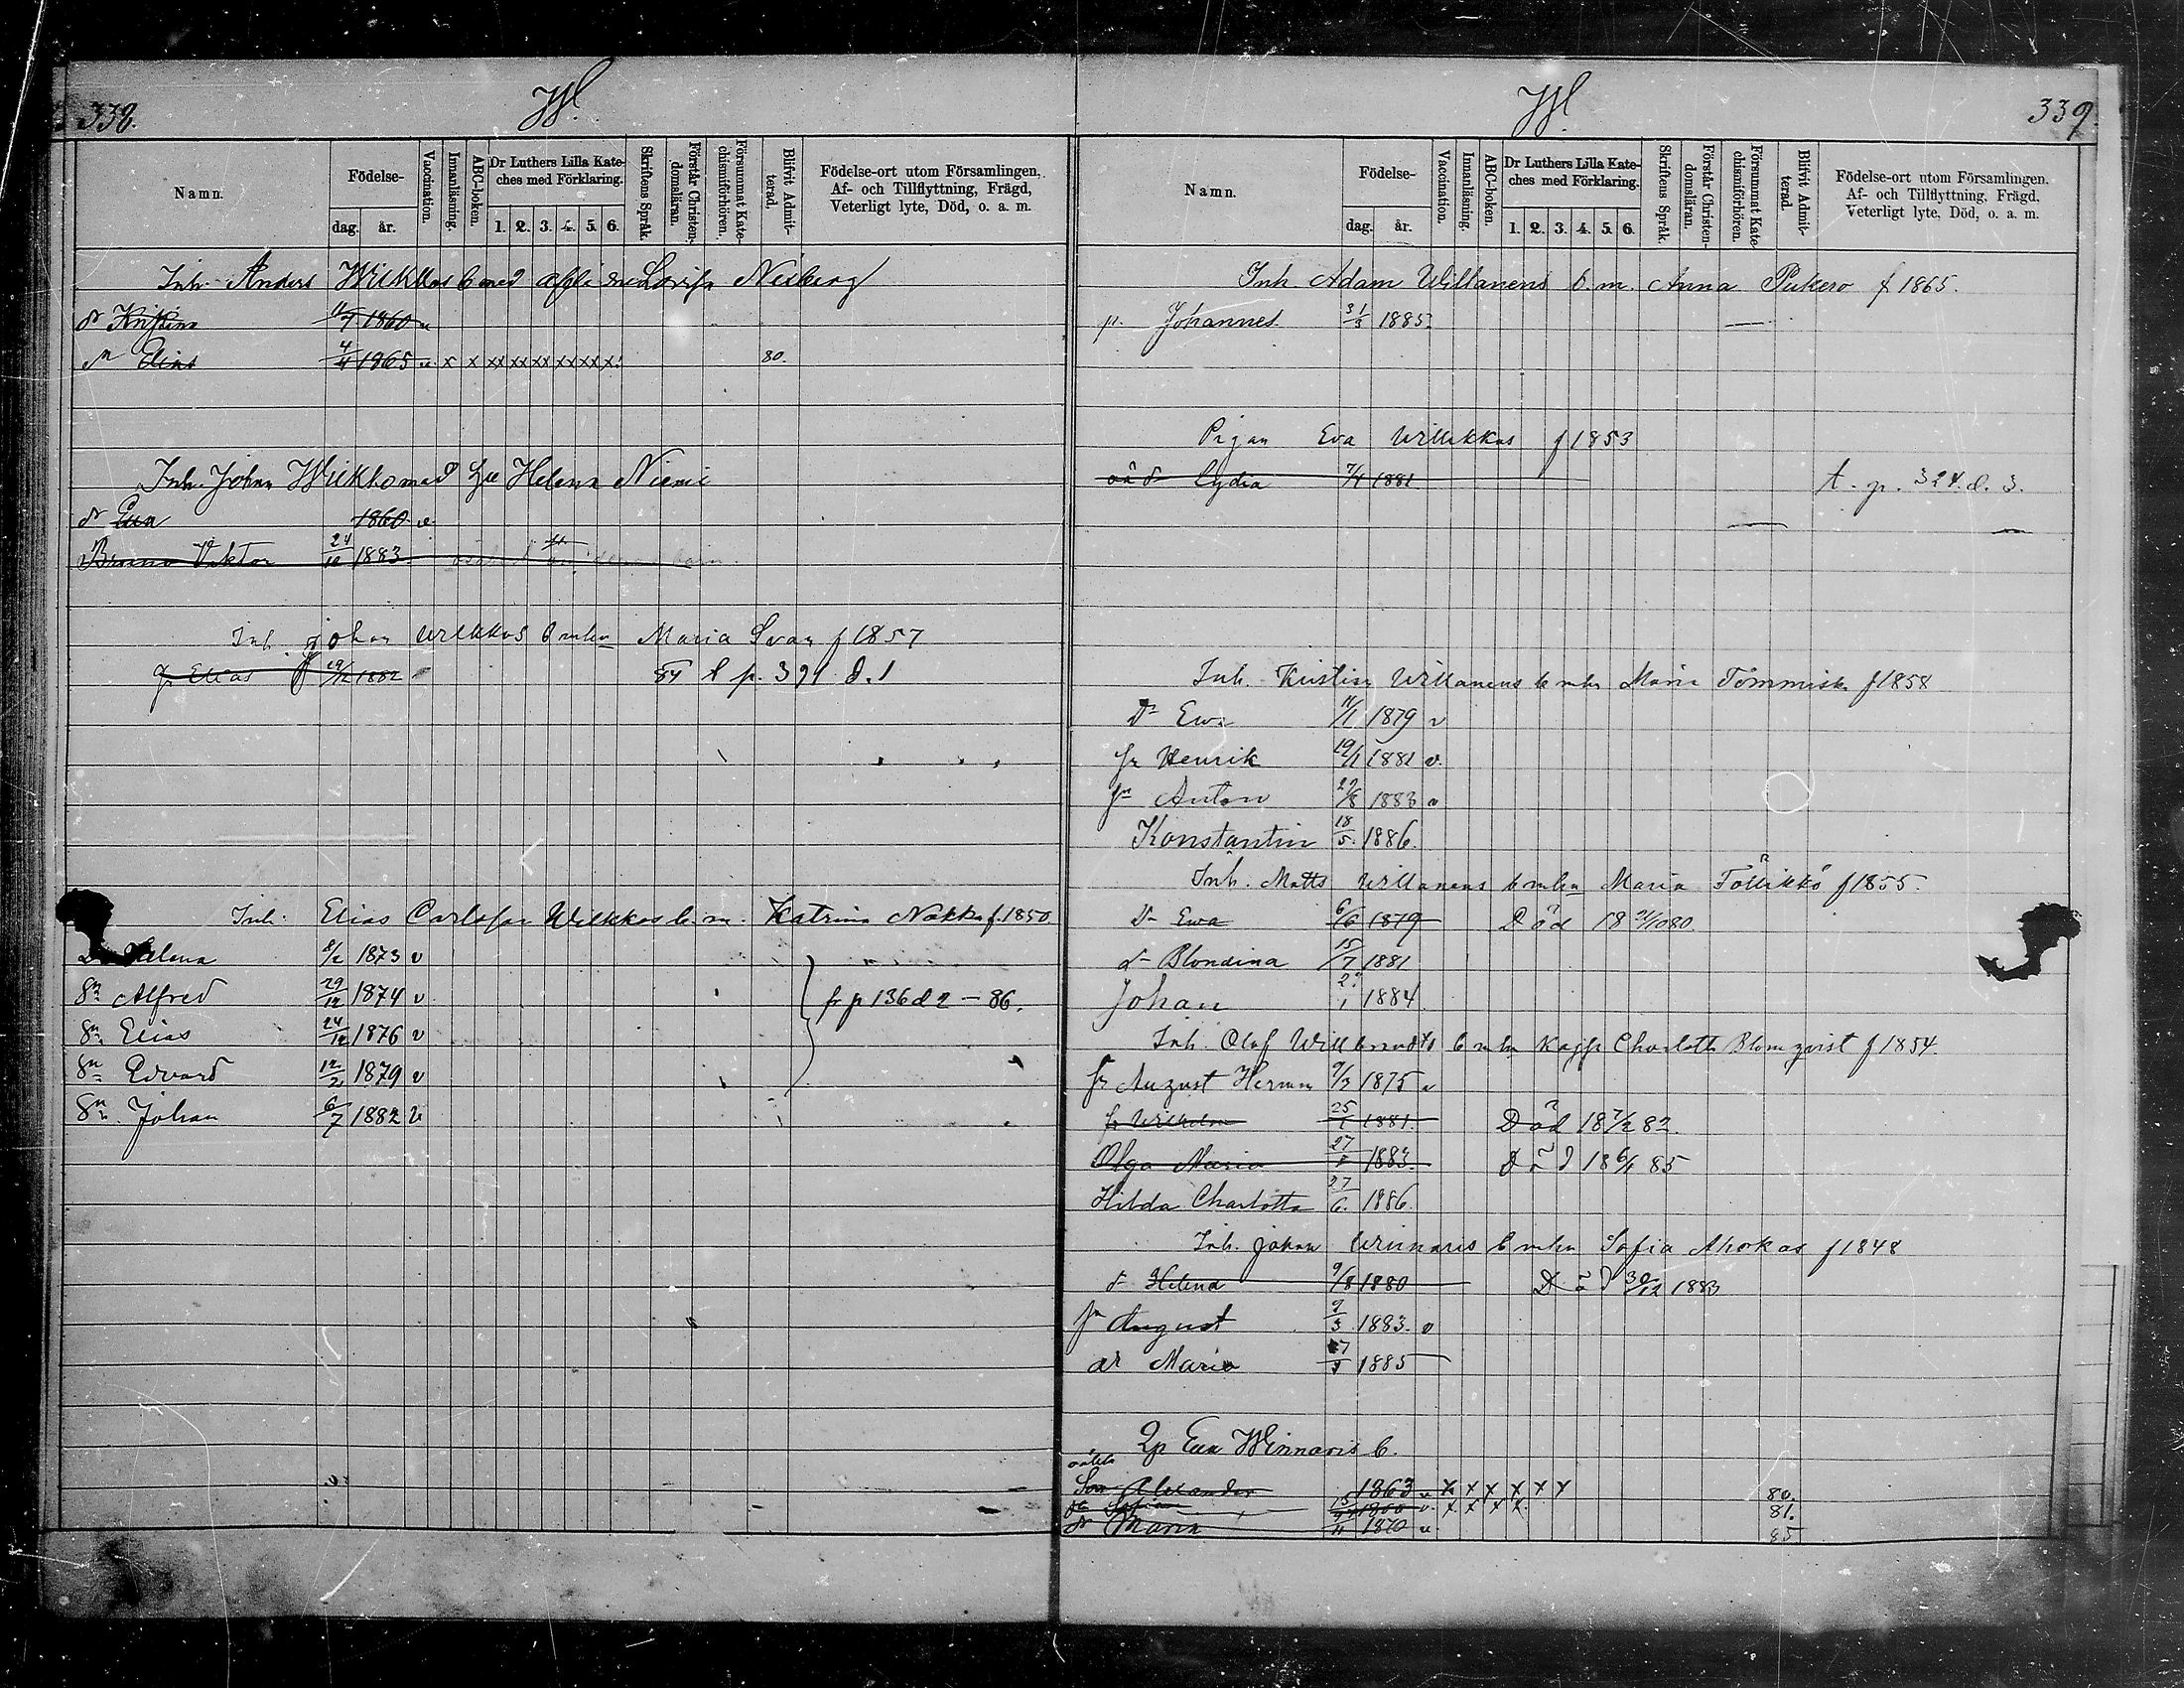 338.
W.
Namn.
Födelse-
dag.
år.
Vaccination.
Innanläsning.
ABC-boken.
Dr Luthers Lilla Kate-
ches med Förklaring.
1. 2. 3. 4. 5. 6.
Skriftens Språk.
Förstår Christen-
domsläran.
Försummat Kate-
chismiförhören.
Blifvit Admit-
terad.
Födelse-ort utom Församlingen.
Af- och Tillflyttning, Frägd,
Veterligt lyte, Död, o. a. m.
Inh. Anders Wilkkos b med Lovisa
dr 1860 v
sn Elias 4/4 1865 v x x xx xx xx xx xx x 80.
Inh. Johan med Helena Niemi
dr Eva 1860 v
Bruno Viktor 24/10 1883
Inh. Johan Wilkkos b mhu Maria Svan f 1857
Elias 1882 84 t p. 391 d. 1
Inh. Elias Carlsson Wilkkos b. m. Katrina Nokko f. 1850.
Helena 8/2 1873 v
Sn Alfred 29/12 1874 v fr p 136 d 2 - 86.
Sn Elias 24/12 1876 v
Sn Edvard 12/2 1879 v
Sn. Johan 6/7 1882 v
W.
339.
Namn.
Födelse-
dag.
år.
Vaccination.
Innanläsning.
ABC-boken.
Dr Luthers Lilla Kate-
ches med Förklaring.
1. 2. 3. 4. 5. 6.
Skriftens Språk.
Förstår Christen-
domsläran.
Försummat Kate-
chismiförhören.
Blifvit Admit-
terad.
Födelse-ort utom Församlingen.
Af- och Tillflyttning, Frägd,
Veterligt lyte, Död, o. a. m.
Inh. Adam Willanens b. m. Anna Pukero f 1865.
Johannes 31/3 1885.
Pigan Eva Wilkkos f 1853
oä dr Lydia 7/4 1881 t. p. 324. d. 3.
Inh. Kristian Willanens b mhu Maria Tommiska f 1858
Dr Eva 11/1 1879 v
sn Henrik 19/1 1881 v.
sn Anton 27/8 1883 v
Konstantin 18/5. 1886.
Inh. Matts Willanens b mhu Maria Töllikkö f 1855.
Dr Ewa 6/6 1879 Död
dr Blondina 15/7 1881
Johan 1884
Inh. Olof Willbrandts b mhu Kajsa Charlotta Blomqvist f 1854.
sn August Herman 9/3 1875 v
sn Wilhelm 25/1 1881. Död 18 7/2 82.
Olga Maria 27/ 1883. Död 18 6/1 85
Hilda Charlotta 27/6. 1886.
Inh. Johan Winnaris b mhu Sofia Ahokas f 1848
dr Helena 9/8 1880 Död 30/12 1883
sn August 9/3 1883. v
dr Maria 1885
Eva Winnaris b.
oäkta
Son Alexander 1863 v x x x x x x 80.
v. x x x x 81.
dr Maria 1870 v 85